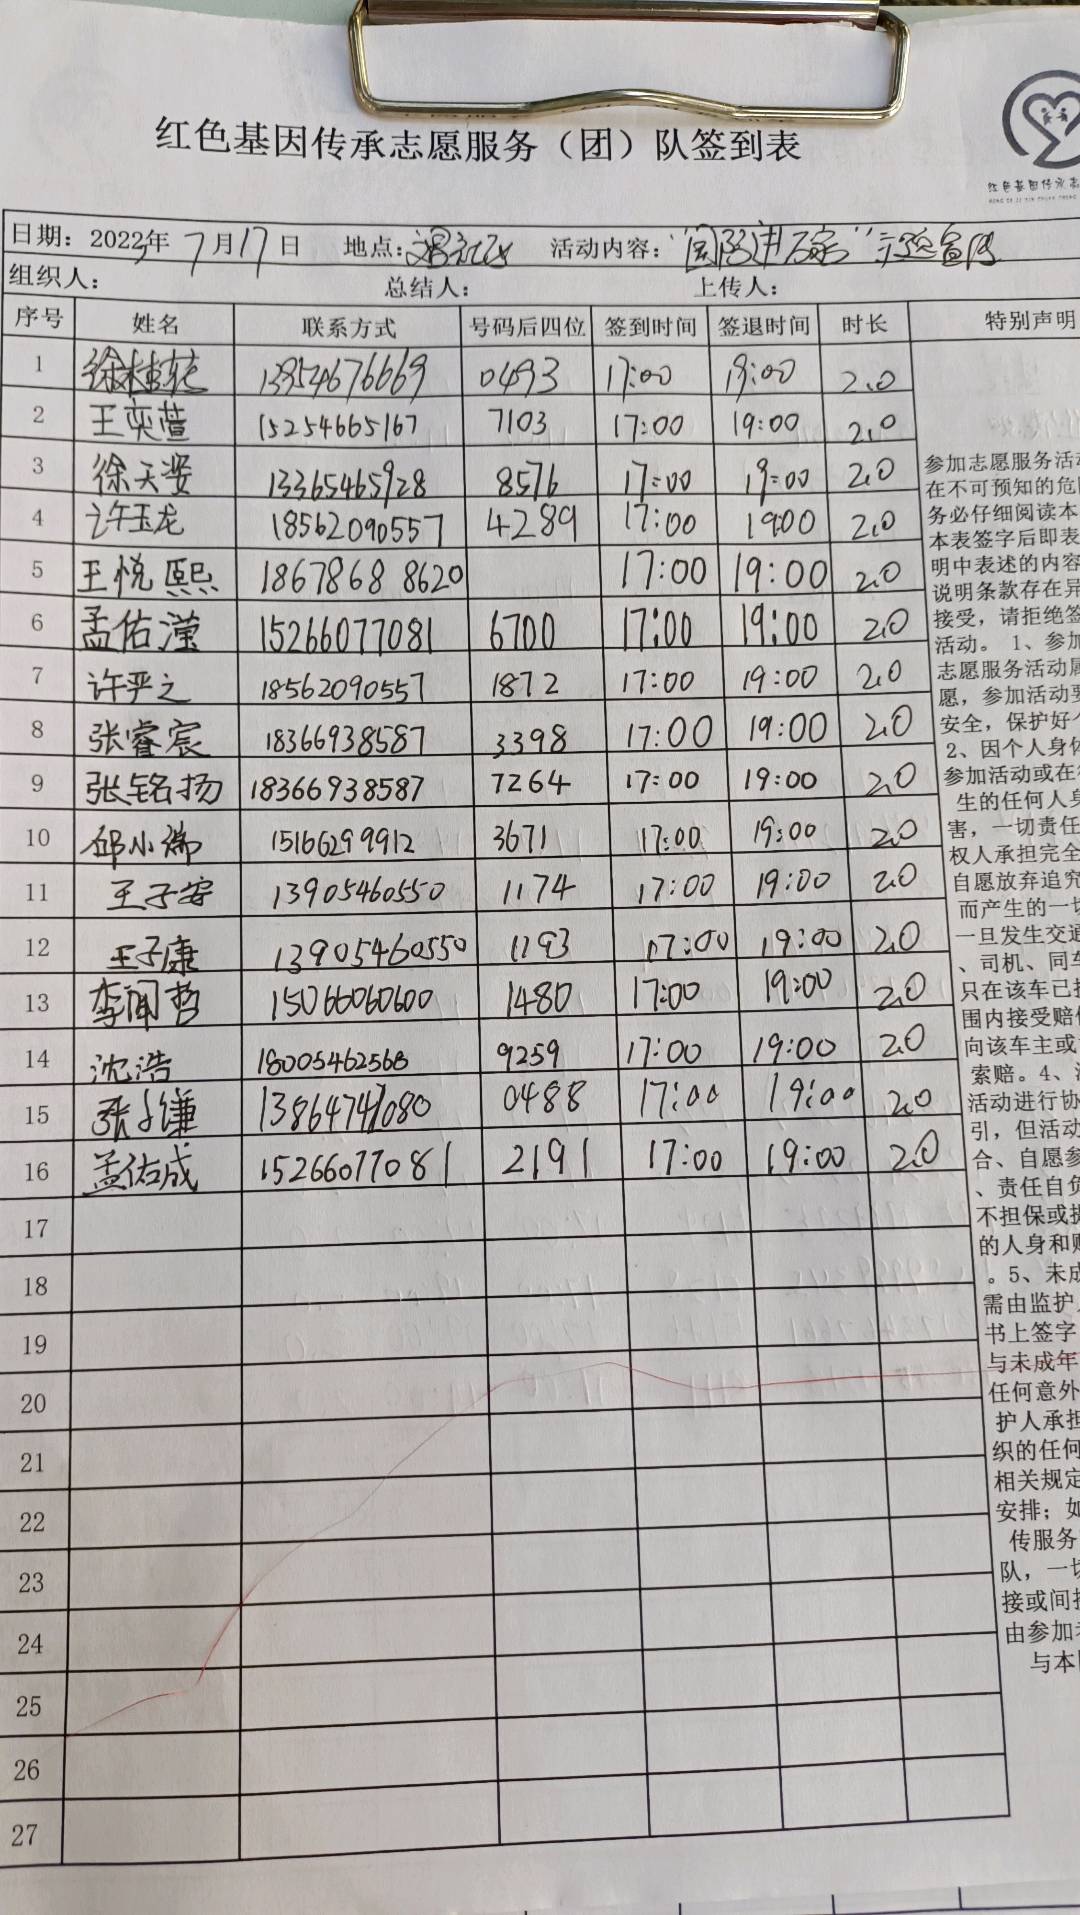 红色基因传承志愿服务（团）队签到表
红色基因传承志
日期：2023年 7月17日 地点： 活动内容：
组织人： 总结人： 上传人：
序号 姓名 联系方式 号码后四位 签到时间 签退时间 时长 特别声明
1 徐桂花 13954676669 0493 17:00 19:00 2.0
2 王奕萱 15254665167 7103 17:00 19:00 2.0
3 徐天姿 13365465928 8576 17:00 19:00 2.0
4 许玉龙 18562090557 4289 17:00 19:00 2.0
5 王悦熙 18678688620 17:00 19:00 2.0
6 孟佑滢 15266077081 6700 17:00 19:00 2.0
7 许严之 18562090557 1872 17:00 19:00 2.0
8 张睿宸 18366938587 3398 17:00 19:00 2.0
9 张铭扬 18366938587 7264 17:00 19:00 2.0
10 邱小端 15166299912 3671 17:00 19:00 2.0
11 王子安 13905460550 1174 17:00 19:00 2.0
12 王子康 13905460550 1193 17:00 19:00 2.0
13 李闻哲 15066060600 1480 17:00 19:00 2.0
14 沈浩 18005462568 9259 17:00 19:00 2.0
15 张子谦 13864741080 0488 17:00 19:00 2.0
16 孟佑成 15266077081 2191 17:00 19:00 2.0
17
18
19
20
21
22
23
24
25
26
27
参加志愿服务活
在不可预知的危
务必仔细阅读本
本表签字后即表
明中表述的内容
说明条款存在异
接受，请拒绝签
活动。 1、参加
志愿服务活动属
愿，参加活动要
安全，保护好个
2、因个人身体
参加活动或在
生的任何人身
害，一切责任
权人承担完全
自愿放弃追究
而产生的一切
一旦发生交通
、司机、同车
只在该车已投
围内接受赔偿
向该车主或
索赔。4、
活动进行协
引，但活动
合、自愿参
、责任自负
不担保或
的人身和财
。5、未成
需由监护
书上签字
与未成年
任何意外
护人承担
织的任何
相关规定
安排；如
传服务
队，一切
接或间接
由参加
与本